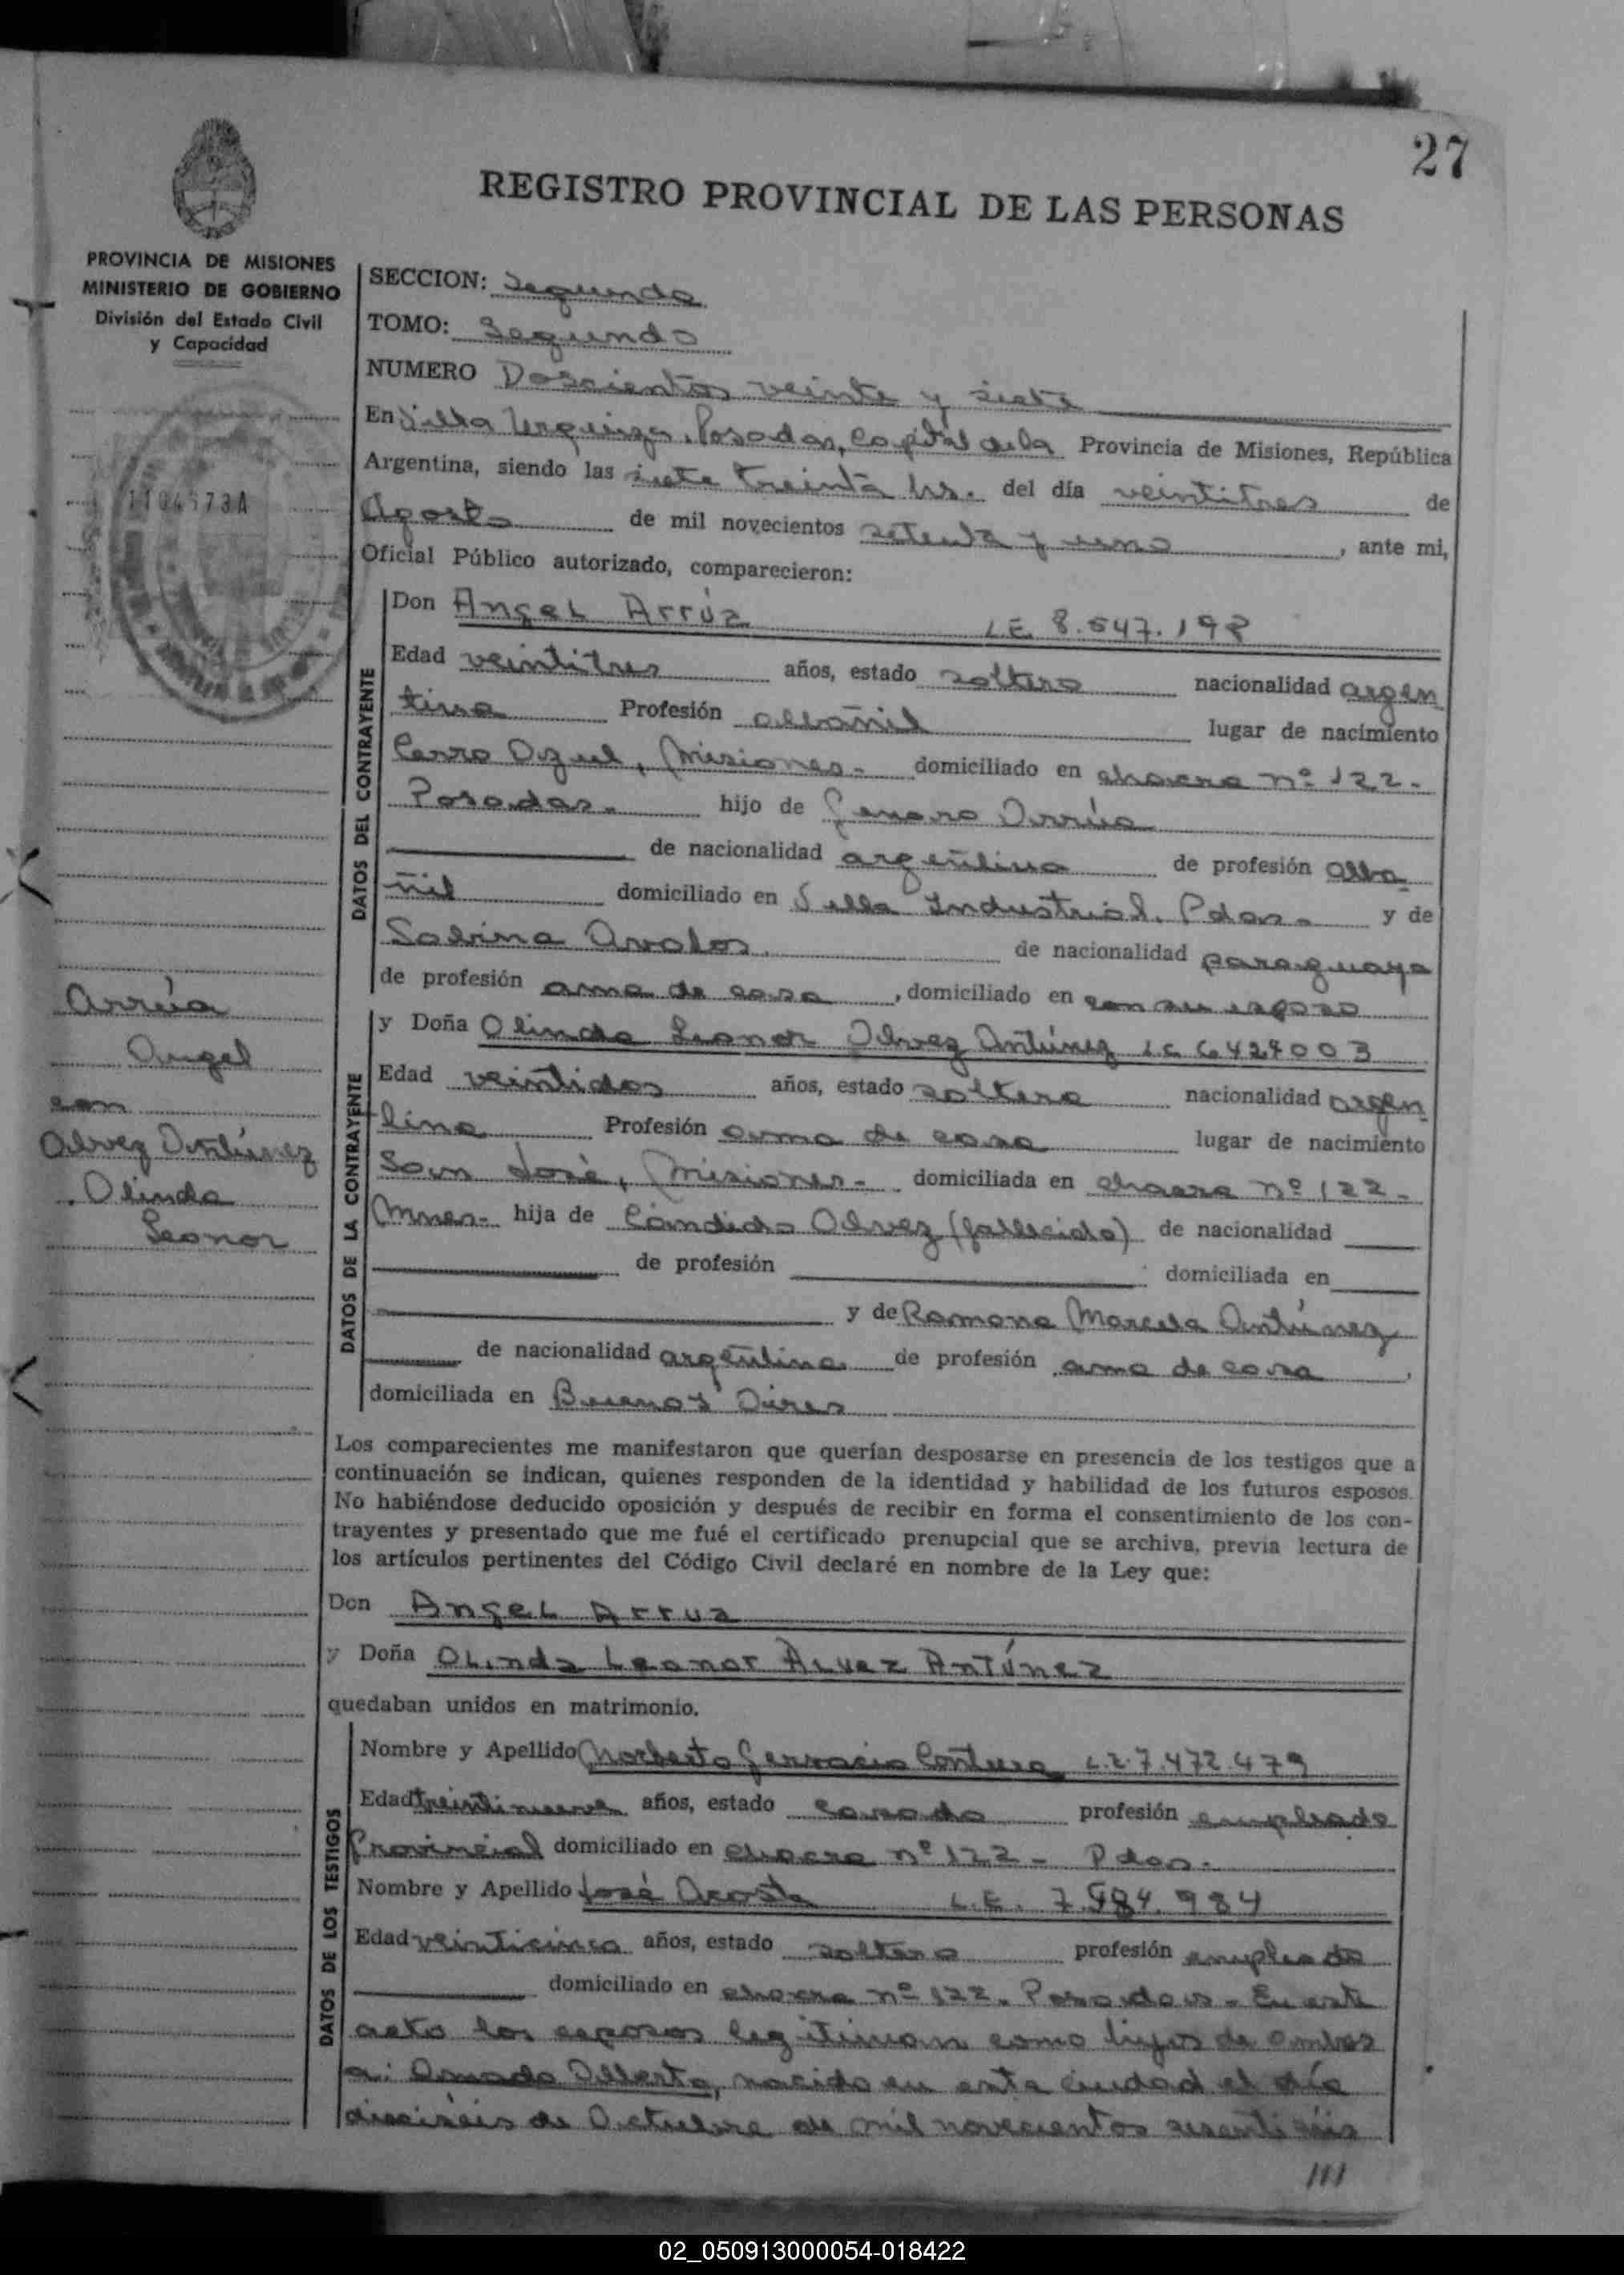 27
REGISTRO PROVINCIAL DE LAS PERSONAS
PROVINCIA DE MISIONES
MINISTERIO DE GOBIERNO
División del Estado Civil
y Capacidad
1104573A
Arrúa
Angel
con
Alvez Antúnez
Olinda
Leonor
SECCION: Segunda
TOMO: Segundo
NUMERO Doscientos veinte y siete
En Villa Urquiza, Posadas, Capital de la Provincia de Misiones, República
Argentina, siendo las siete treinta hs. del día veintitres de
Agosto de mil novecientos setenta y uno, ante mi,
Oficial Público autorizado, comparecieron:
DATOS DEL CONTRAYENTE
Don Angel Arrúa L.E. 8.547.198
Edad veintitres años, estado soltero nacionalidad argen
tina Profesión albañil lugar de nacimiento
Cerro Azul, Misiones.- domiciliado en chacra nº 122.-
Posadas.- hijo de Genaro Arrúa
de nacionalidad argentino de profesión alba
ñil domiciliado en Villa Industrial, Pdas.- y de
Sabina Avalos, de nacionalidad paraguaya
de profesión ama de casa, domiciliado en con su esposo
DATOS DE LA CONTRAYENTE
y Doña Olinda Leonor Alvez Antúnez L.C 6429003
Edad veintidos años, estado soltera nacionalidad argen
tina Profesión ama de casa lugar de nacimiento
San José, Misiones.- domiciliada en chacra nº 122.-
Mnes.- hija de Cándido Alvez (fallecido) de nacionalidad
de profesión domiciliada en
y de Ramona Marcela Antúnez
de nacionalidad argentina de profesión ama de casa,
domiciliada en Buenos Aires
Los comparecientes me manifestaron que querían desposarse en presencia de los testigos que a
continuación se indican, quienes responden de la identidad y habilidad de los futuros esposos.
No habiéndose deducido oposición y después de recibir en forma el consentimiento de los con-
trayentes y presentado que me fué el certificado prenupcial que se archiva, previa lectura de
los artículos pertinentes del Código Civil declaré en nombre de la Ley que:
Don Angel Arrua
y Doña Olinda Leonor Alvez Antúnez
quedaban unidos en matrimonio.
DATOS DE LOS TESTIGOS
Nombre y Apellido Norberto Gervacio 7.472.479
Edad treintinueve años, estado casado profesión empleado
Provincial domiciliado en chacra nº 122 - Pdas.-
Nombre y Apellido José Acosta L.E. 7.984
Edad veinticinco años, estado soltero profesión empleado
domiciliado en chacra nº 122. Posadas.- En este
acto los esposos legitiman como hijos de ambos
a: Amado Alberto, nacido en esta ciudad el día
dieciséis de Octubre de mil novecientos sesentiséis
///
02_050913000054-018422